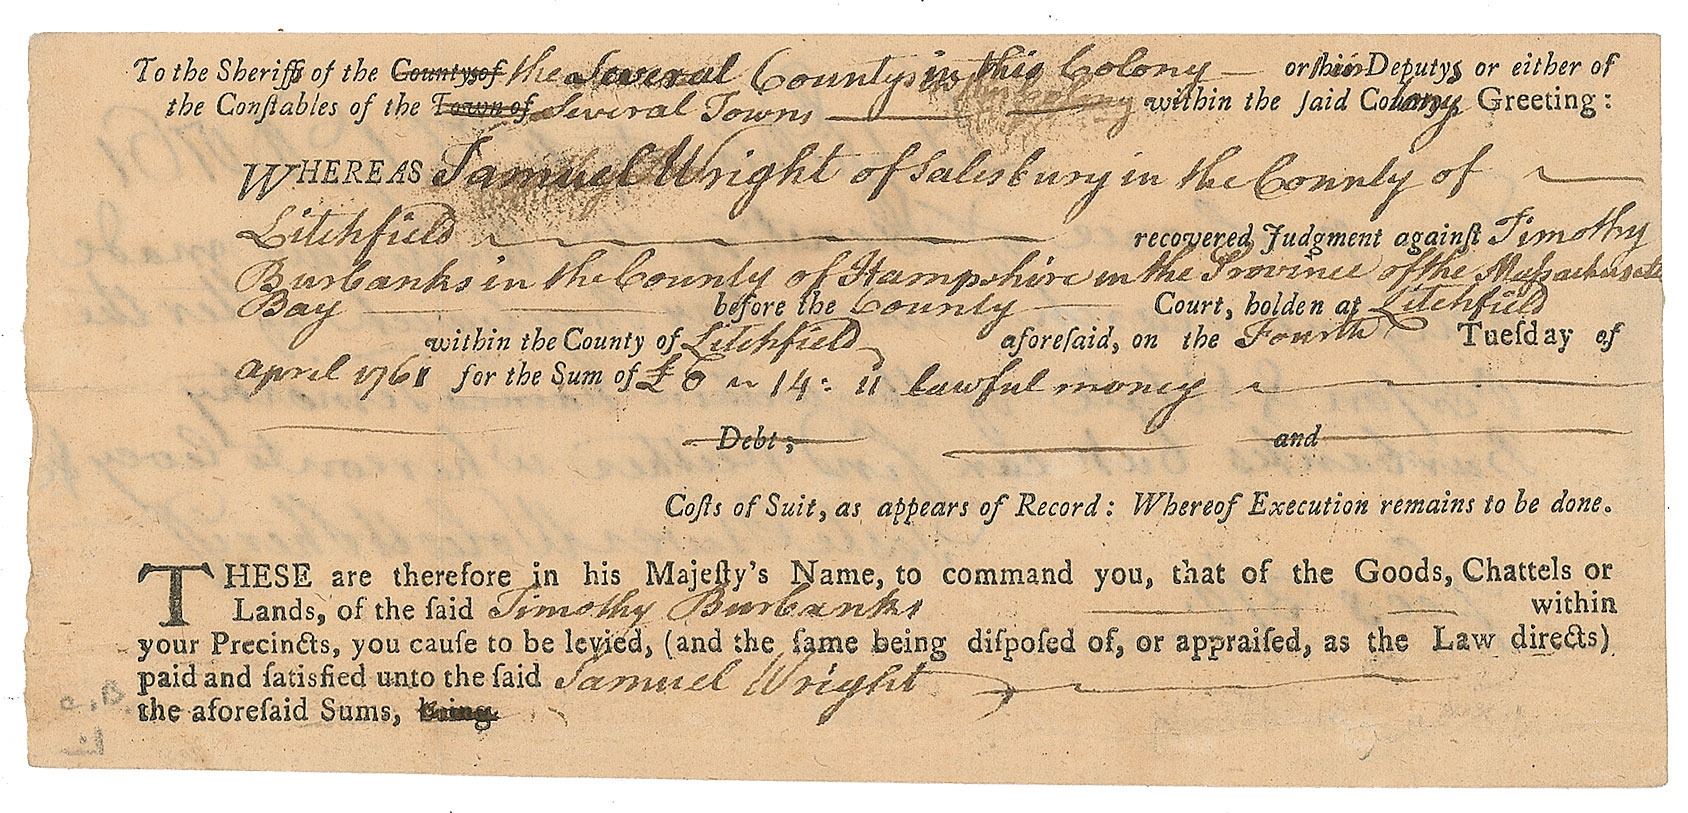 To the Sheriffs of the Countysof the Several Countys in this Colony or thier Deputys or either of
the Conſtables of the Town of Several Towns within the ſaid Colony Greeting:
WHEREAS Samuel Wright of Salesbury in the County of
Litchfield recovered Judgment againſt Timothy
Burbanks in the County of Hampshire in the Province of the Massachusetts
Bay before the County Court, holden at Litchfield
within the County of Litchfield aforeſaid, on the Fourth Tueſday of
April 1761 for the Sum of £6 ~ 14: 11 lawful money
Debt; and
Coſts of Suit, as appears of Record: Whereof Execution remains to be done.
THESE are therefore in his Majeſty's Name, to command you, that of the Goods, Chattels or
Lands, of the ſaid Timothy Burbanks within
your Precincts, you cauſe to be levied, (and the ſame being diſpoſed of, or appraiſed, as the Law directs)
paid and ſatisfied unto the ſaid Samuel Wright
the aforeſaid Sums, being